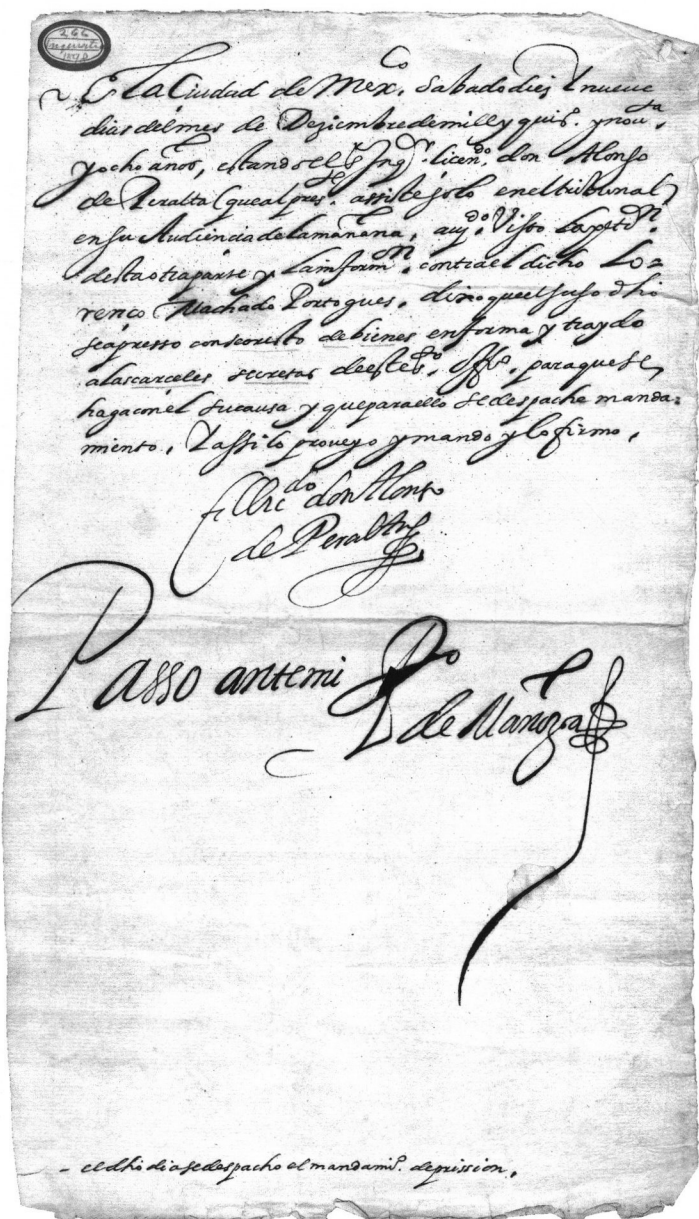 266
En la Ciudad de Mexco. Sabado diez y nueve
dias del mes de Deziembre de mill y quis. y nouta.
y ocho años, estando el sr. Inqr. licendo. don Alonso
de Peralta (que al prese. assiste solo en el tribunal)
en su Audiencia de la mañana, auido. Visto la petión.
desta otra parte y la informon. contra el dicho Lo=
renço Machado Portogues. dixo que el suso dho
sea presso con secresto de bienes en forma y traydo
a las carceles secretas deeste sto. offo. para que se
haga con el su causa y que para ello se despache manda=
miento, Y assi lo proveyo y mando y lo firmo.
El licdo don Alonso
de Peralta
Passo ante mi Po
de Mañozca
- el dho dia se despacho el mandamio. de prission.